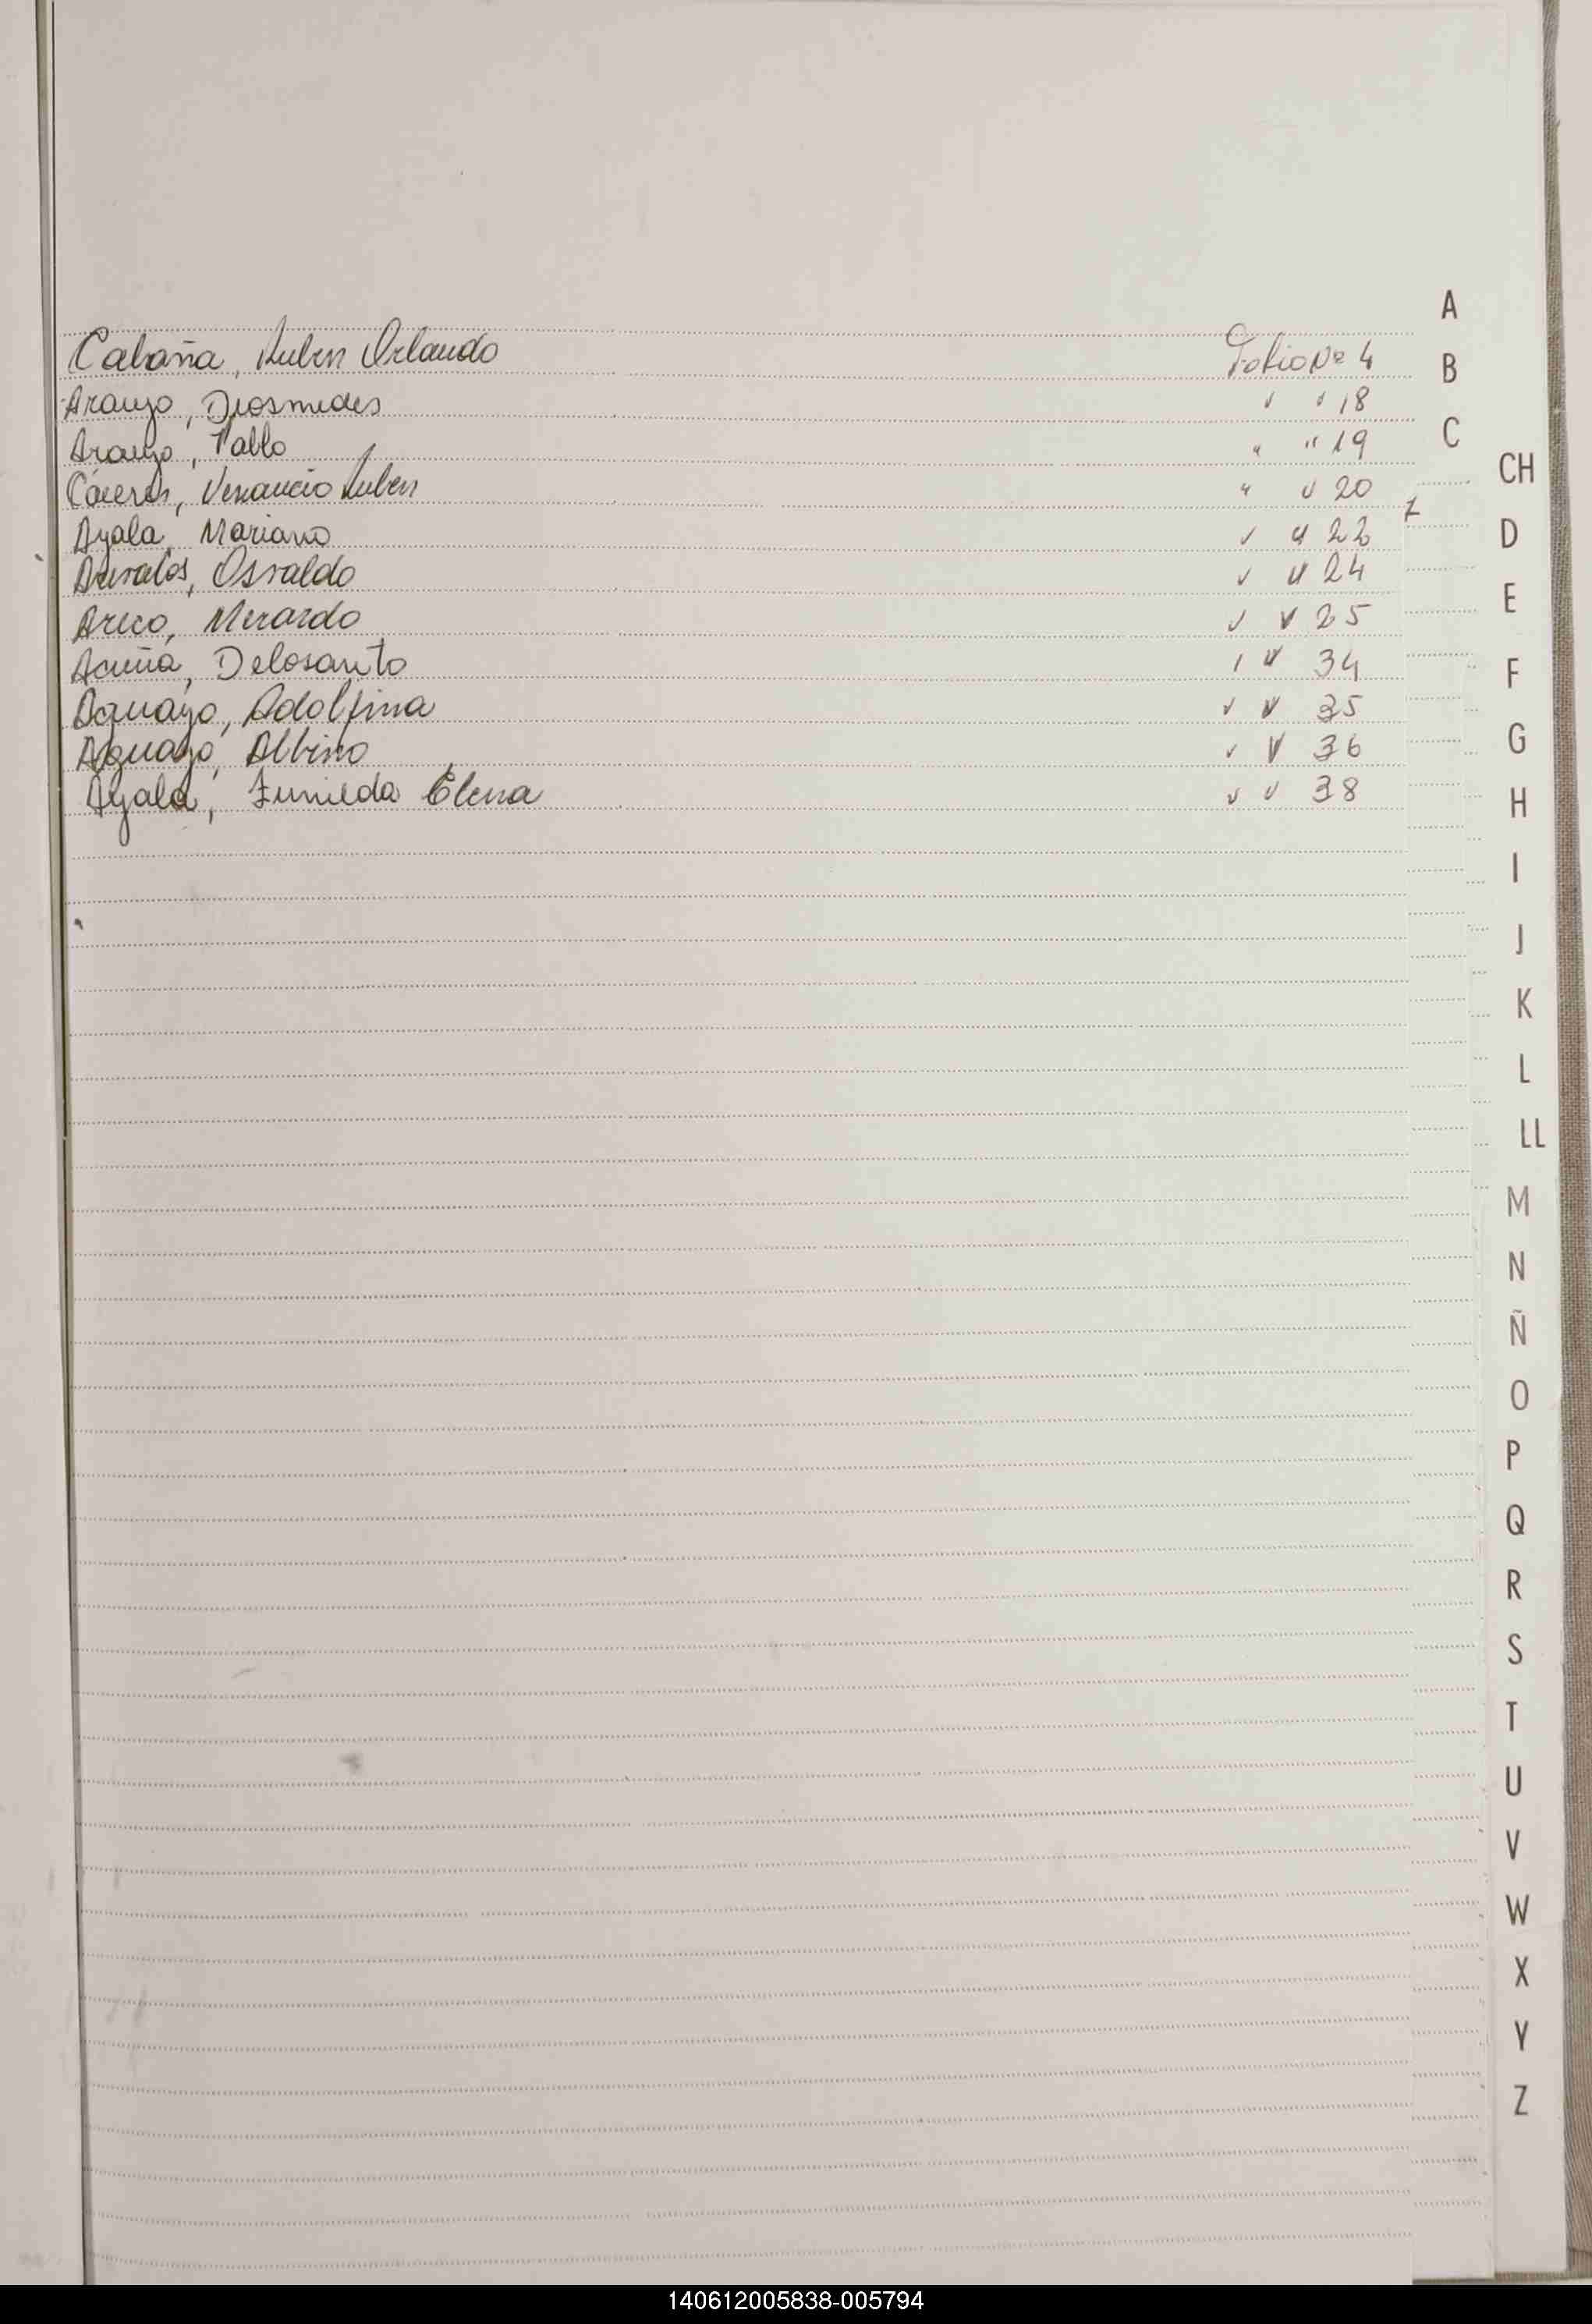 Cabaña, Ruben Orlando Folio Nº 4
Araujo, Diosmedes " " 18
Araujo, Pablo " " 19
Cáceres, Venancio Ruben " " 20
Ayala, Mariano " " 22
Avalos, Osvaldo " " 24
Areco, Merardo " " 25
Acuña, Delosanto " " 34
Aguayo, Adolfina " " 35
Aguayo, Albino " " 36
Ayala, Elena " " 38
A
B
C
CH
D
E
F
G
H
I
J
K
L
LL
M
N
Ñ
O
P
Q
R
S
T
U
V
W
X
Y
Z
140612005838-005794